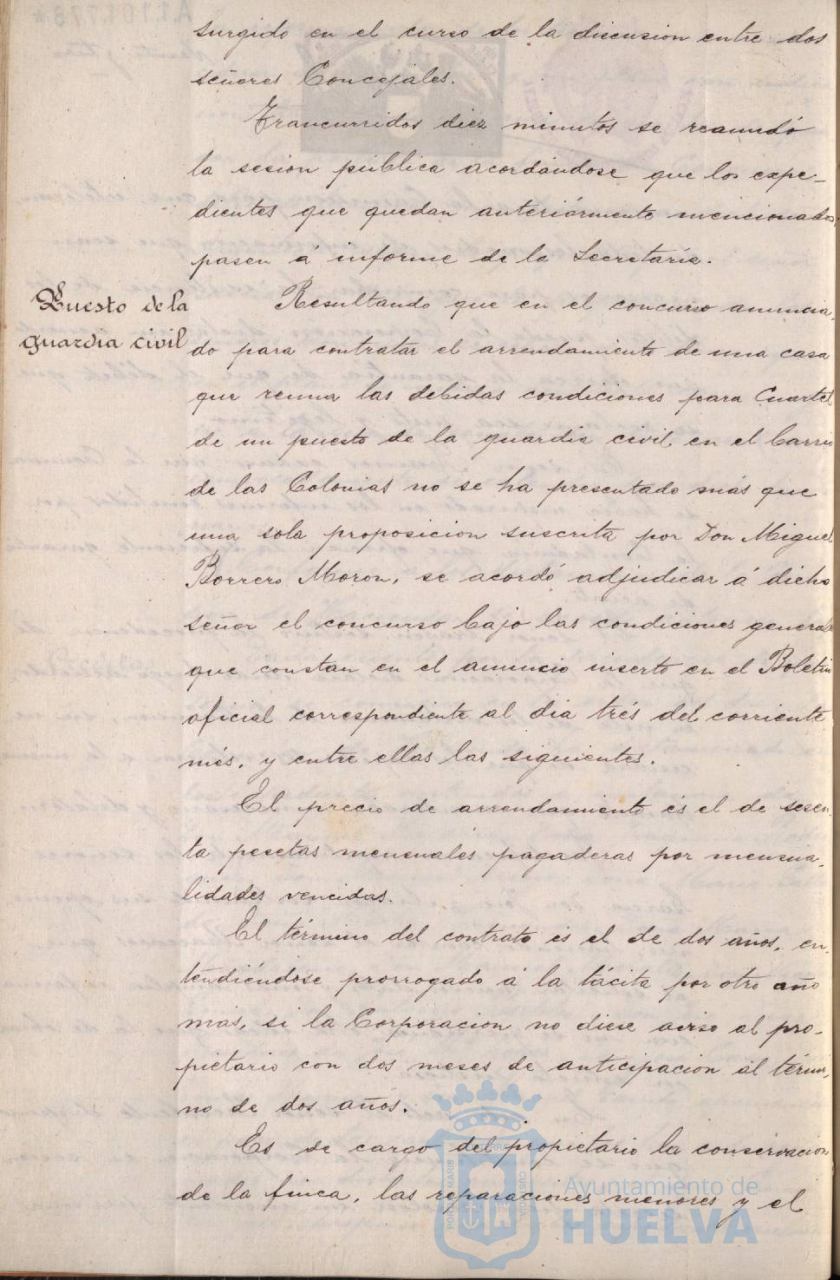 surgido en el curso de la discusion entre dos
señores Concejales.
Trancurridos diez minutos se reanudó
la sesion pública acordándose que los expe-
dientes que quedan anteriórmente mencionados,
pasen á informe de la Secretaría.
Puesto de la
guardia civil
Resultando que en el concurso anuncia-
do para contratar el arrendamiento de una casa
que reuna las debidas condiciones para Cuartel
de un puesto de la guardia civil en el barrio
de las Colonias no se ha presentado más que
una sola proposicion suscrita por Don Miguel
Borrero Moron, se acordó adjudicar á dicho
señor el concurso bajo las condiciones generales
que constan en el anuncio inserto en el Boletin
oficial correspondiente al dia trés del corriente
més, y entre ellas las siguientes.
El precio de arrendamiento és el de sesen-
ta pesetas mensuales pagaderas por mensua-
lidades vencidas.
El término del contrato és el de dos años, en-
tendiéndose prorrogado á la tácita por otro año
mas, si la Corporacion no diese aviso al pro-
pietario con dos meses de anticipacion al térmi-
no de dos años.
Es de cargo del propietario la conservacion
de la finca, las reparaciones menores y el
Ayuntamiento de
HUELVA